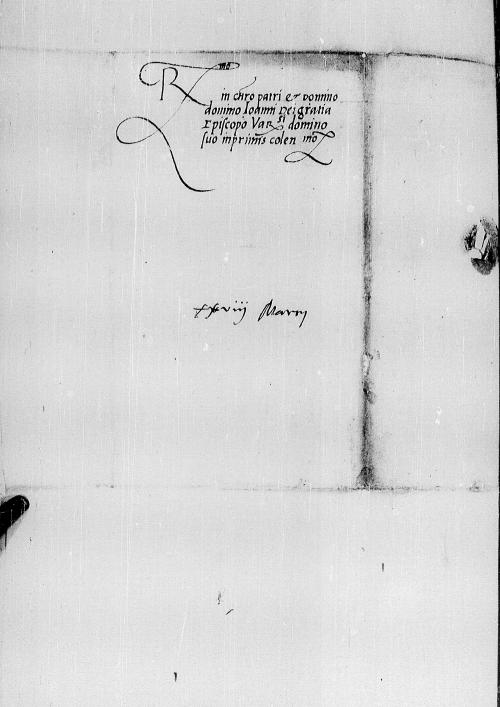 R mo
in chro patri et domino
domino Ioanni Dei gratia
Episcopo Var si domino
suo inprimis colen mo
xxviij Marcij